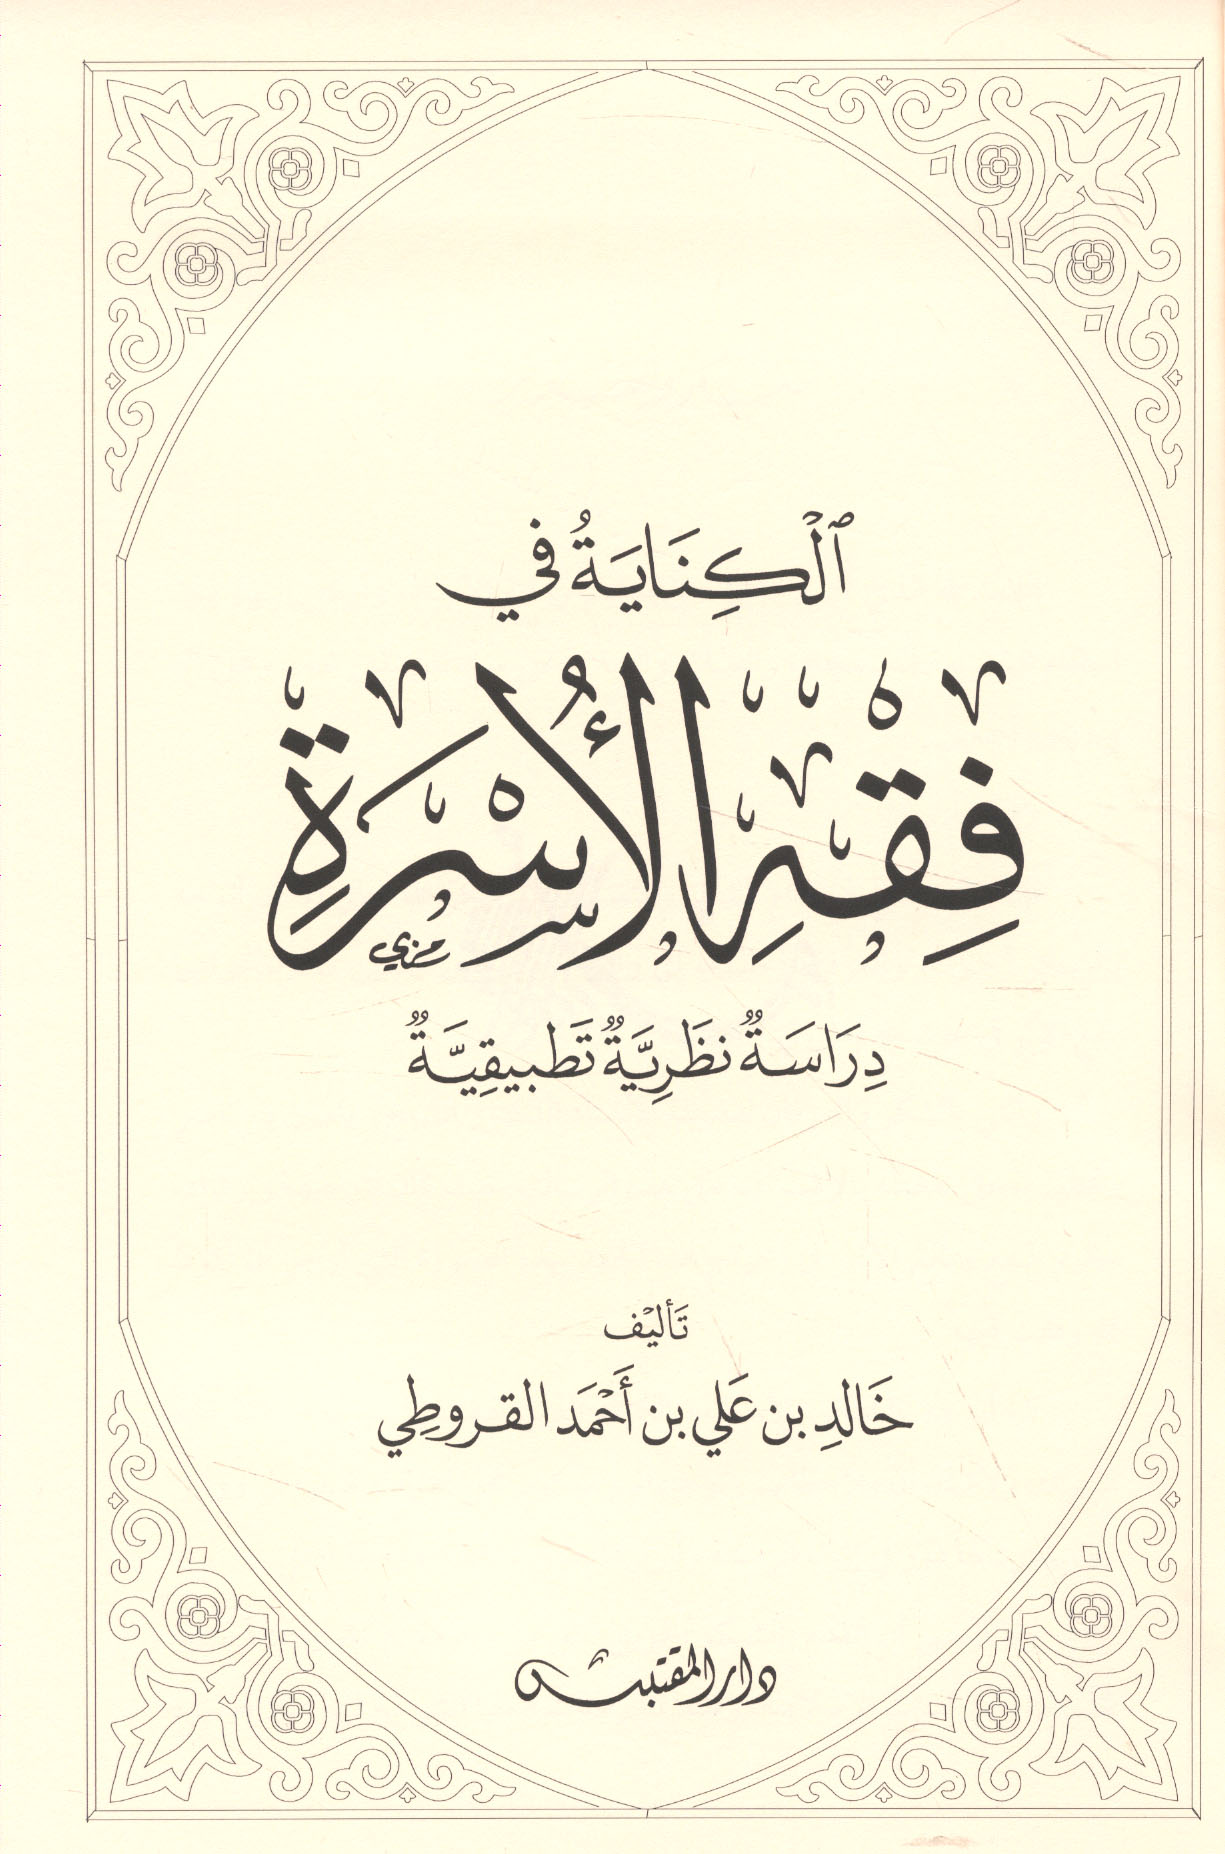 ٱلْكِنَايَةُ في
فِقْهِ الْأُسْرَةِ
دِرَاسَةٌ نَظَرِيَّةٌ تَطبيقِيَّةٌ
تَأليْف
خَالِد بن عَلي بن أَحْمَد القروطِي
دار المقتبس